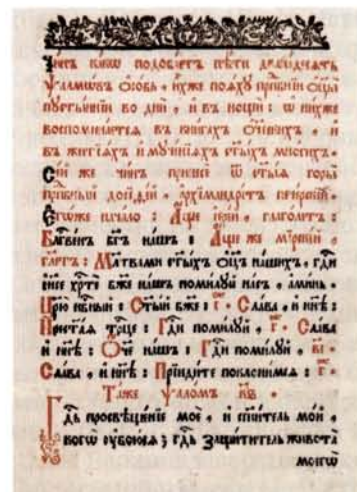 Чинъ како подобаетъ пѣти дванадесять
ѱалмѡвъ ѻсобь, ихже пояху прпⷣбнїи ѻц҃ы
пустыннїи во дни, и въ нощи: ѡ нихже
воспоминается въ книгахъ ѻтеческихъ, и
въ житїяхъ и мученїяхъ ст҃ыхъ многихъ.
Сїй же чинъ принесе ѿ ст҃ыя горы
прпⷣбный досиѳей, архїмандритъ печерскїй.
Егѡже начало: Аще їерей, глаголетъ:
Блг҃венъ бг҃ъ нашъ: Аще же мїрянинъ,
гл҃етъ: Млт҃вами ст҃ыхъ ѻц҃ъ нашихъ, гдⷭ҇и
їисе хрⷭ҇те бж҃е нашъ помилуй насъ, аминь.
Црю нбⷭ҇ный: Ст҃ый бж҃е: г҃. Слава, и нн҃ѣ:
Прест҃ая трⷪ҇це: Гдⷭ҇и помилуй, г҃. Слава
и нн҃ѣ: Ѻч҃е нашъ: Гдⷭ҇и помилуй, в҃і.
Слава, и нн҃ѣ: Прїидите поклонимся: г҃.
Таже ѱалом к҃ѕ.
Гдⷭ҇ь просвѣщенїе мое, и сп҃ситель мой,
когѡ убоюся; гдⷭ҇ь защититель живота
моегѡ